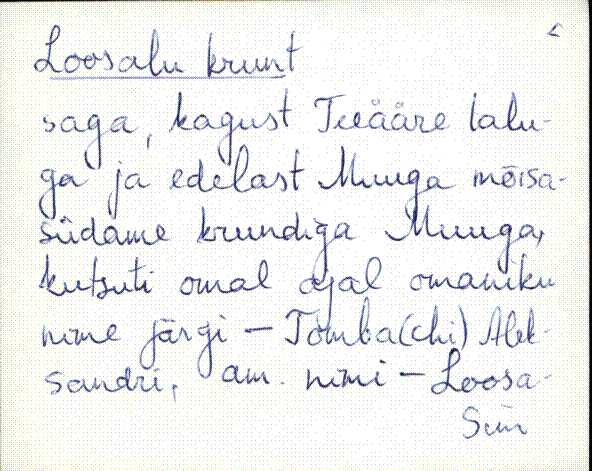 2
Loosalu krunt
saga, kagust Teeääre talu-
ga ja edelast Muuga mõisa-
südame krundiga Muuga,
kutsuti omal ajal omaniku
nime järgi – Tomba(chi) Alek-
sandri, am. nimi – Loosa-